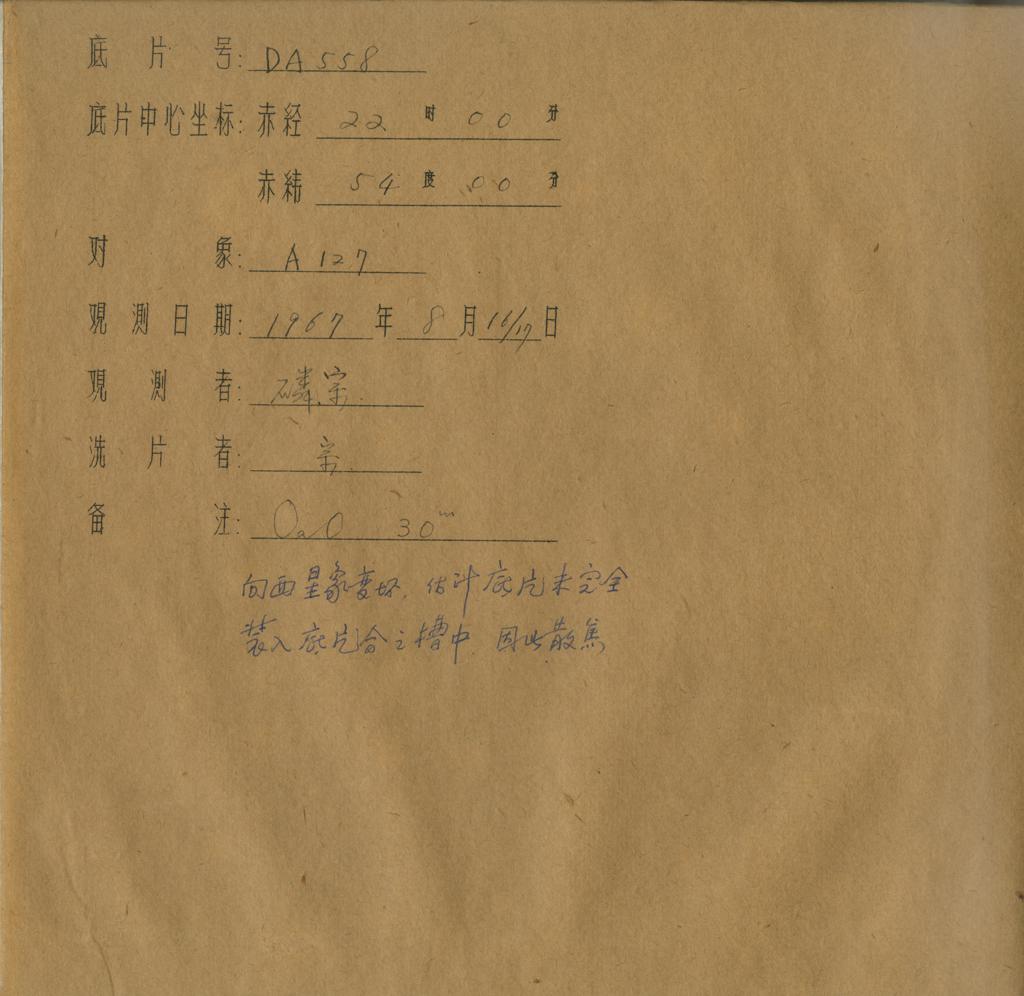 底片号: DA558
底片中心坐标: 赤经 22 时 00 分
赤纬 54 度 00 分
对象: A127
观测日期: 1967 年 8 月 16/17 日
观测者: 磷、宗
洗片者: 宗
备注: OaO 30ᵐ
向西星象变坏, 估计底片未完全
装入底片合之槽中, 因此散焦